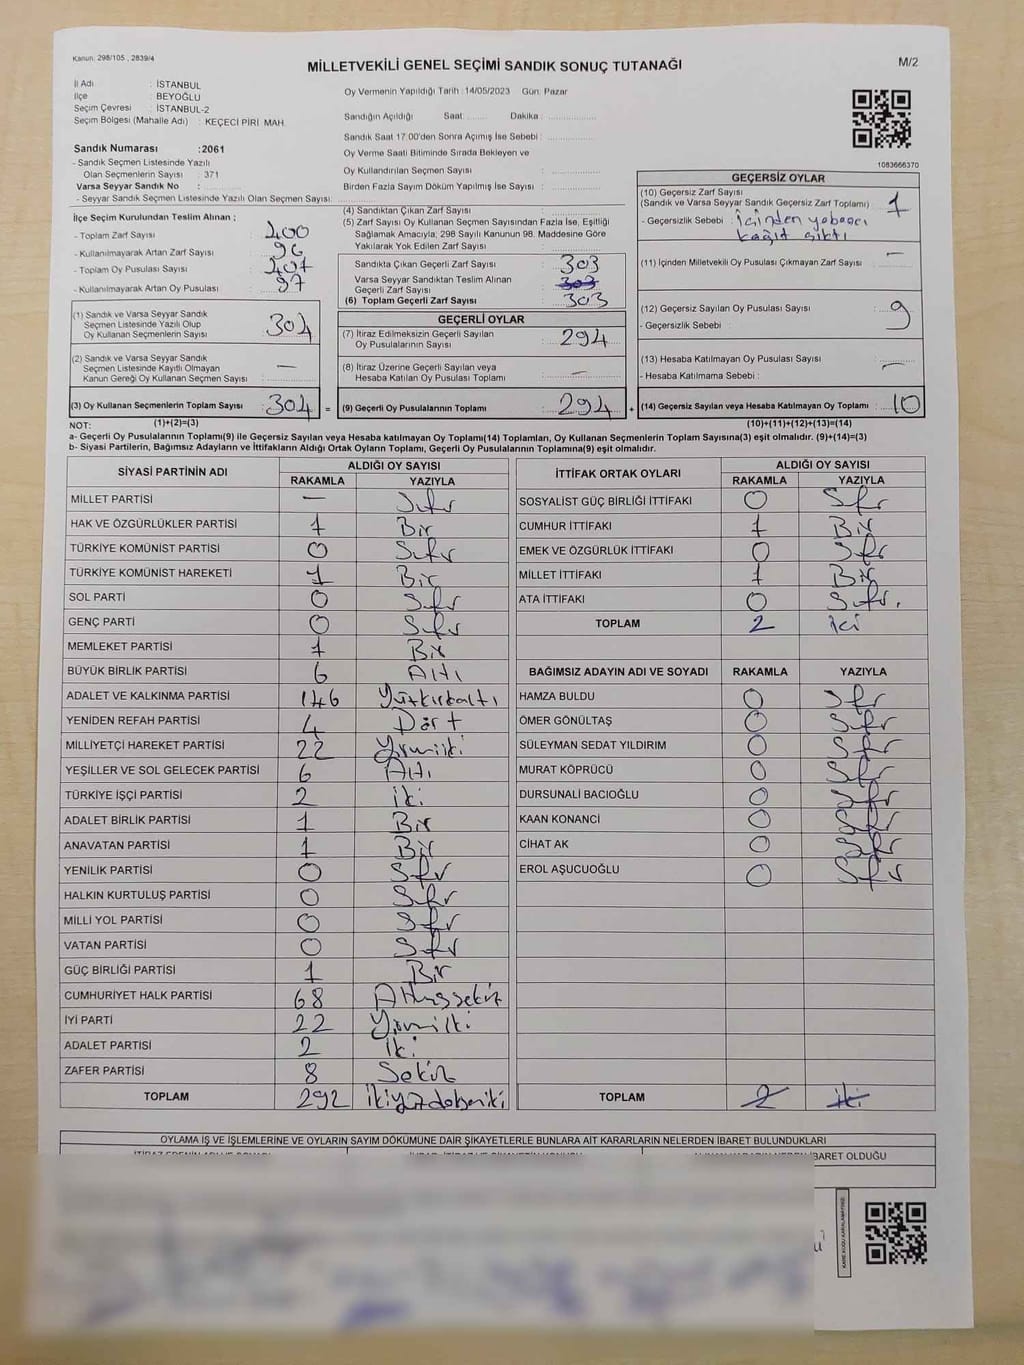 Kanun: 298/105 , 2839/4
MİLLETVEKİLİ GENEL SEÇİMİ SANDIK SONUÇ TUTANAĞI
M/2
İl Adı : İSTANBUL
İlçe : BEYOĞLU
Seçim Çevresi : İSTANBUL-2
Seçim Bölgesi (Mahalle Adı) : KEÇECİ PİRİ MAH.
Sandık Numarası :2061
- Sandık Seçmen Listesinde Yazılı
Olan Seçmenlerin Sayısı : 371
Varsa Seyyar Sandık No :
- Seyyar Sandık Seçmen Listesinde Yazılı Olan Seçmen Sayısı:
Oy Vermenin Yapıldığı Tarih :14/05/2023 Gün: Pazar
Sandığın Açıldığı Saat Dakika :
Sandık Saat 17.00'den Sonra Açımış İse Sebebi :
Oy Verme Saati Bitiminde Sırada Bekleyen ve
Oy Kullandırılan Seçmen Sayısı :
Birden Fazla Sayım Döküm Yapılmış İse Sayısı :
1083666370
İlçe Seçim Kurulundan Teslim Alınan ;
- Toplam Zarf Sayısı : 400
- Kullanılmayarak Artan Zarf Sayısı : 96
- Toplam Oy Pusulası Sayısı : 401
- Kullanılmayarak Artan Oy Pusulası : 97
(1) Sandık ve Varsa Seyyar Sandık
Seçmen Listesinde Yazılı Olup
Oy Kullanan Seçmenlerin Sayısı : 304
(2) Sandık ve Varsa Seyyar Sandık
Seçmen Listesinde Kayıtlı Olmayan
Kanun Gereği Oy Kullanan Seçmen Sayısı : —
(3) Oy Kullanan Seçmenlerin Toplam Sayısı : 304 =
(4) Sandıktan Çıkan Zarf Sayısı :
(5) Zarf Sayısı Oy Kullanan Seçmen Sayısından Fazla İse, Eşitliği
Sağlamak Amacıyla; 298 Sayılı Kanunun 98. Maddesine Göre
Yakılarak Yok Edilen Zarf Sayısı :
Sandıkta Çıkan Geçerli Zarf Sayısı : 303
Varsa Seyyar Sandıktan Teslim Alınan
Geçerli Zarf Sayısı : 303
(6) Toplam Geçerli Zarf Sayısı : 303
GEÇERLİ OYLAR
(7) İtiraz Edilmeksizin Geçerli Sayılan
Oy Pusulalarının Sayısı : 294
(8) İtiraz Üzerine Geçerli Sayılan veya
Hesaba Katılan Oy Pusulası Toplamı : —
(9) Geçerli Oy Pusulalarının Toplamı : 294 +
GEÇERSİZ OYLAR
(10) Geçersiz Zarf Sayısı
(Sandık ve Varsa Seyyar Sandık Geçersiz Zarf Toplamı) : 1
- Geçersizlik Sebebi : İçinden yabancı
kağıt çıktı
(11) İçinden Milletvekili Oy Pusulası Çıkmayan Zarf Sayısı : —
(12) Geçersiz Sayılan Oy Pusulası Sayısı : 9
- Geçersizlik Sebebi :
(13) Hesaba Katılmayan Oy Pusulası Sayısı : —
- Hesaba Katılmama Sebebi :
(14) Geçersiz Sayılan veya Hesaba Katılmayan Oy Toplamı : 10
NOT: (1)+(2)=(3) (10)+(11)+(12)+(13)=(14)
a- Geçerli Oy Pusulalarının Toplamı(9) ile Geçersiz Sayılan veya Hesaba katılmayan Oy Toplamı(14) Toplamları, Oy Kullanan Seçmenlerin Toplam Sayısına(3) eşit olmalıdır. (9)+(14)=(3)
b- Siyasi Partilerin, Bağımsız Adayların ve İttifakların Aldığı Ortak Oyların Toplamı, Geçerli Oy Pusulalarının Toplamına(9) eşit olmalıdır.
SİYASİ PARTİNİN ADI ALDIĞI OY SAYISI
RAKAMLA YAZIYLA
MİLLET PARTİSİ — Sıfır
HAK VE ÖZGÜRLÜKLER PARTİSİ 1 Bir
TÜRKİYE KOMÜNİST PARTİSİ 0 Sıfır
TÜRKİYE KOMÜNİST HAREKETİ 1 Bir
SOL PARTİ 0 Sıfır
GENÇ PARTİ 0 Sıfır
MEMLEKET PARTİSİ 1 Bir
BÜYÜK BİRLİK PARTİSİ 6 Altı
ADALET VE KALKINMA PARTİSİ 146 Yüzkırkaltı
YENİDEN REFAH PARTİSİ 4 Dört
MİLLİYETÇİ HAREKET PARTİSİ 22 Yirmiiki
YEŞİLLER VE SOL GELECEK PARTİSİ 6 Altı
TÜRKİYE İŞÇİ PARTİSİ 2 iki
ADALET BİRLİK PARTİSİ 1 Bir
ANAVATAN PARTİSİ 1 Bir
YENİLİK PARTİSİ 0 Sıfır
HALKIN KURTULUŞ PARTİSİ 0 Sıfır
MİLLİ YOL PARTİSİ 0 Sıfır
VATAN PARTİSİ 0 Sıfır
GÜÇ BİRLİĞİ PARTİSİ 1 Bir
CUMHURİYET HALK PARTİSİ 68 Altmışsekiz
İYİ PARTİ 22 Yirmiiki
ADALET PARTİSİ 2 iki
ZAFER PARTİSİ 8 Sekiz
TOPLAM 292 ikiyüzdoksaniki
İTTİFAK ORTAK OYLARI ALDIĞI OY SAYISI
RAKAMLA YAZIYLA
SOSYALİST GÜÇ BİRLİĞİ İTTİFAKI 0 Sıfır
CUMHUR İTTİFAKI 1 Bir
EMEK VE ÖZGÜRLÜK İTTİFAKI 0 Sıfır
MİLLET İTTİFAKI 1 Bir
ATA İTTİFAKI 0 Sıfır.
TOPLAM 2 iki
BAĞIMSIZ ADAYIN ADI VE SOYADI RAKAMLA YAZIYLA
HAMZA BULDU 0 Sıfır
ÖMER GÖNÜLTAŞ 0 Sıfır
SÜLEYMAN SEDAT YILDIRIM 0 Sıfır
MURAT KÖPRÜCÜ 0 Sıfır
DURSUNALİ BACIOĞLU 0 Sıfır
KAAN KONANCİ 0 Sıfır
CİHAT AK 0 Sıfır
EROL AŞUCUOĞLU 0 Sıfır
TOPLAM 2 iki
OYLAMA İŞ VE İŞLEMLERİNE VE OYLARIN SAYIM DÖKÜMÜNE DAİR ŞİKAYETLERLE BUNLARA AİT KARARLARIN NELERDEN İBARET BULUNDUKLARI
İBARET OLDUĞU